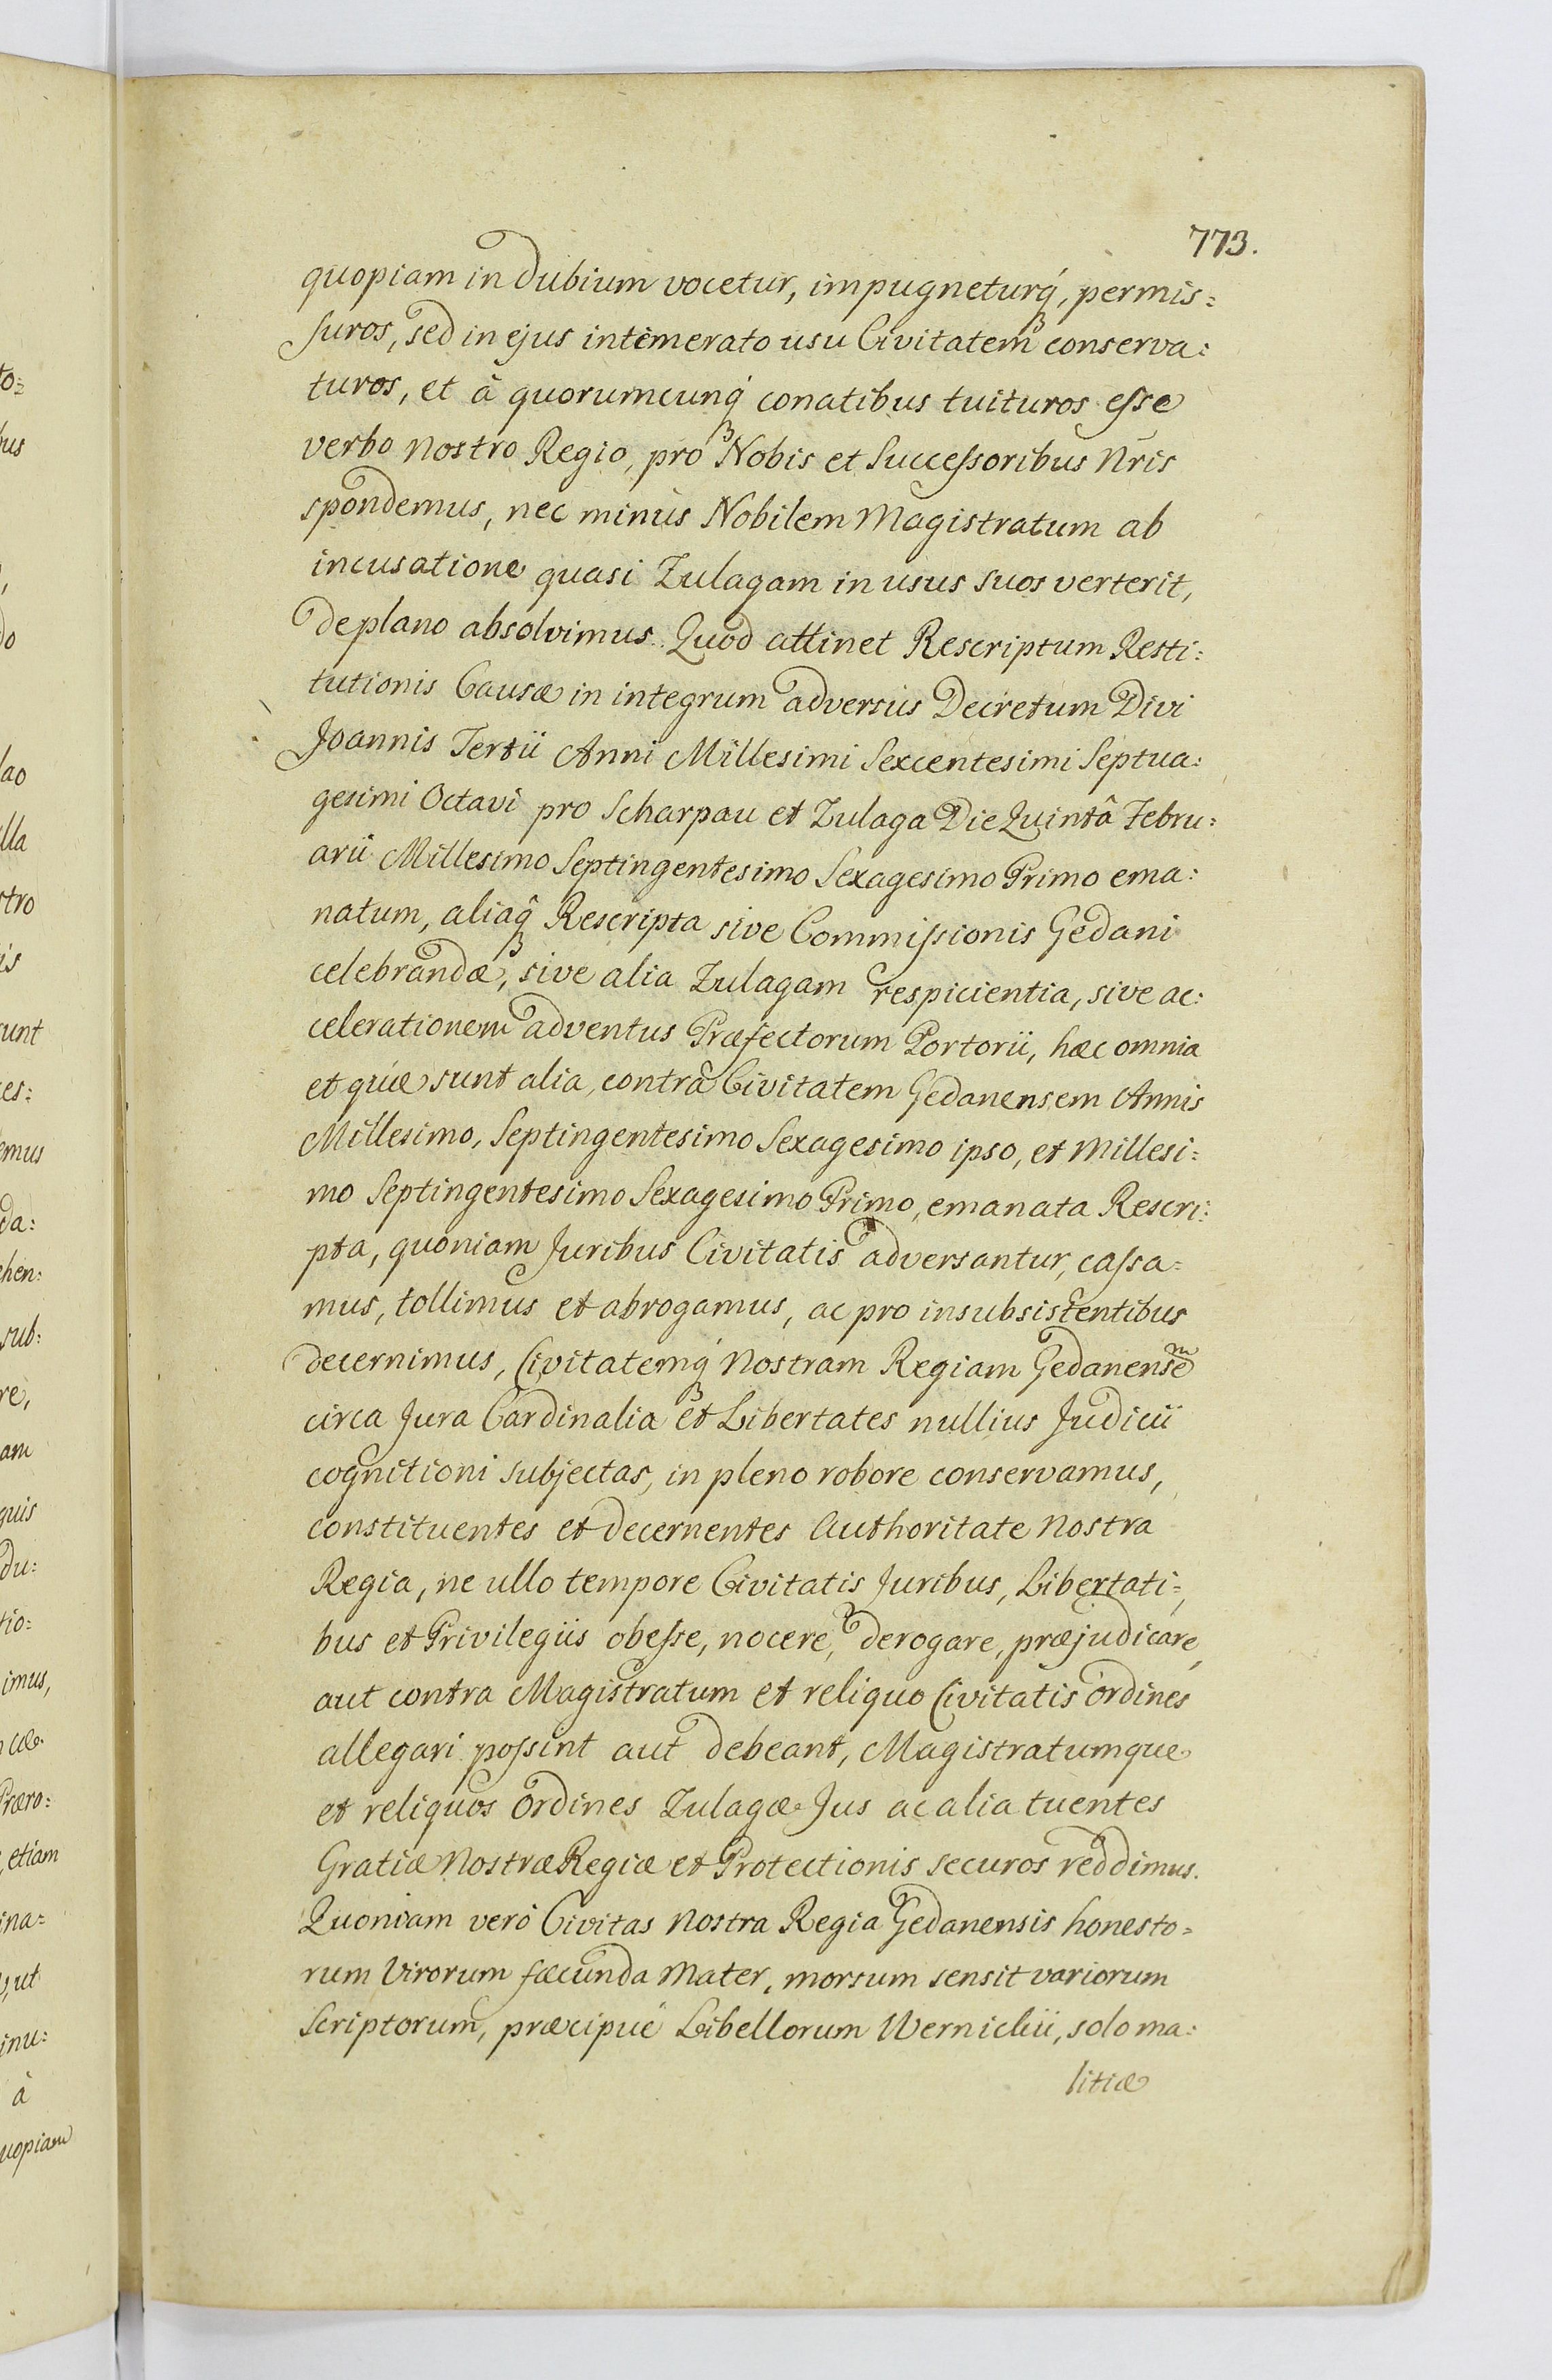 773.
quopiam in dubium vocetur, impugneturq́, permis:
suros, sed in ejus intemerato usu Civitatem conserva:
turos, et à quorumcunq́ conatibus tuituros esse
verbo nostro Regio, pro Nobis et Successoribus Nr̃is
spondemus, nec minus Nobilem Magistratum ab
incusatione quasi Zulagam in usus suos verterit,
de plano absolvimus. Quod attinet Rescriptum Resti:
tutionis Causæ in integrum adversus Decretum Divi
Joannis Tertii Anni Millesimi Sexcentesimi Septua:
gesimi Octavi pro Scharpau et Zulaga Die Quintâ Febru:
arii Millesimo Septingentesimo Sexagesimo Primo ema:
natum, aliaq́ Rescripta sive Commissionis Gedani
celebrandæ, sive alia Zulagam respicientia, sive ac:
celerationem adventus Præfectorum Portorii, hæc omnia
et quæ sunt alia, contra Civitatem Gedanensem Annis
Millesimo, Septingentesimo Sexagesimo ipso, et Millesi:
mo Septingentesimo Sexagesimo Primo, emanata Rescri:
pta, quoniam Juribus Civitatis adversantur, cassa=
mus, tollimus et abrogamus, ac pro insubsistentibus
decernimus, Civitatemq́ nostram Regiam Gedanensem
circa Jura Cardinalia et Libertates nullius Judicii
cognitioni subjectas, in pleno robore conservamus,
constituentes et decernentes Authoritate nostra
Regia, ne ullo tempore Civitatis Juribus, Libertati=
bus et Privilegiis obesse, nocere, derogare, præjudicare,
aut contra Magistratum et reliquo Civitatis ordines
allegari possint aut debeant, Magistratumque
et reliquos ordines Zulagæ Jus ac alia tuentes
Gratiæ nostræ Regiæ et Protectionis securos reddimus.
Quoniam verò Civitas nostra Regia Gedanensis honesto=
rum Virorum fæcunda Mater, morsum sensit variorum
Scriptorum, præcipué Libellorum Wernickii, solo ma:
litiæ